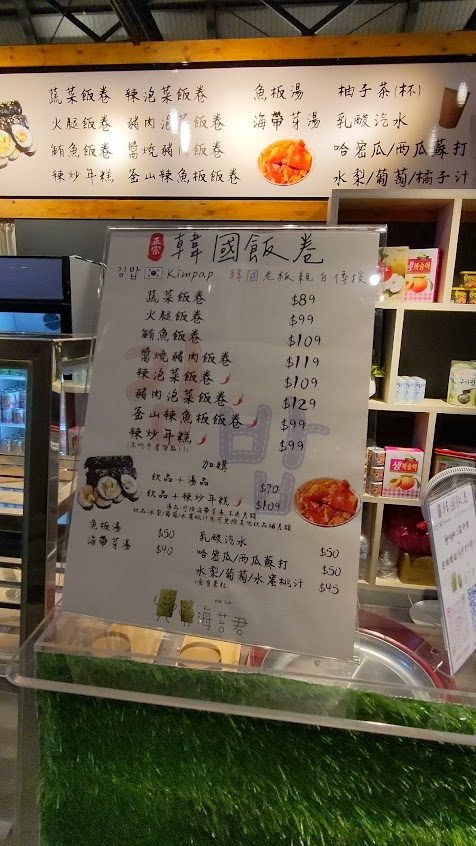 蔬菜飯卷 辣泡菜飯卷 魚板湯 柚子茶(杯)
火腿飯卷 豬肉泡菜飯卷 海帶芽湯 乳酸汽水
鮪魚飯卷 醬燒豬肉飯卷 哈密瓜/西瓜蘇打
辣炒年糕 釜山辣魚板飯卷 水梨/葡萄/橘子汁
正宗 韓國飯卷
김밥 Kimpap 韓國老闆親自傳授
蔬菜飯卷 $89
火腿飯卷 $99
鮪魚飯卷 $109
醬燒豬肉飯卷 $119
辣泡菜飯卷 $109
豬肉泡菜飯卷 $129
釜山辣魚板飯卷 $99
辣炒年糕 $99
밥
加購
飲品+湯品 $70
飲品+辣炒年糕 $109
魚板湯 $50
海帶芽湯 $40
乳酸汽水 $50
哈密瓜/西瓜蘇打 $50
水梨/葡萄/水蜜桃汁 $45
(含有果粒)
海苔君